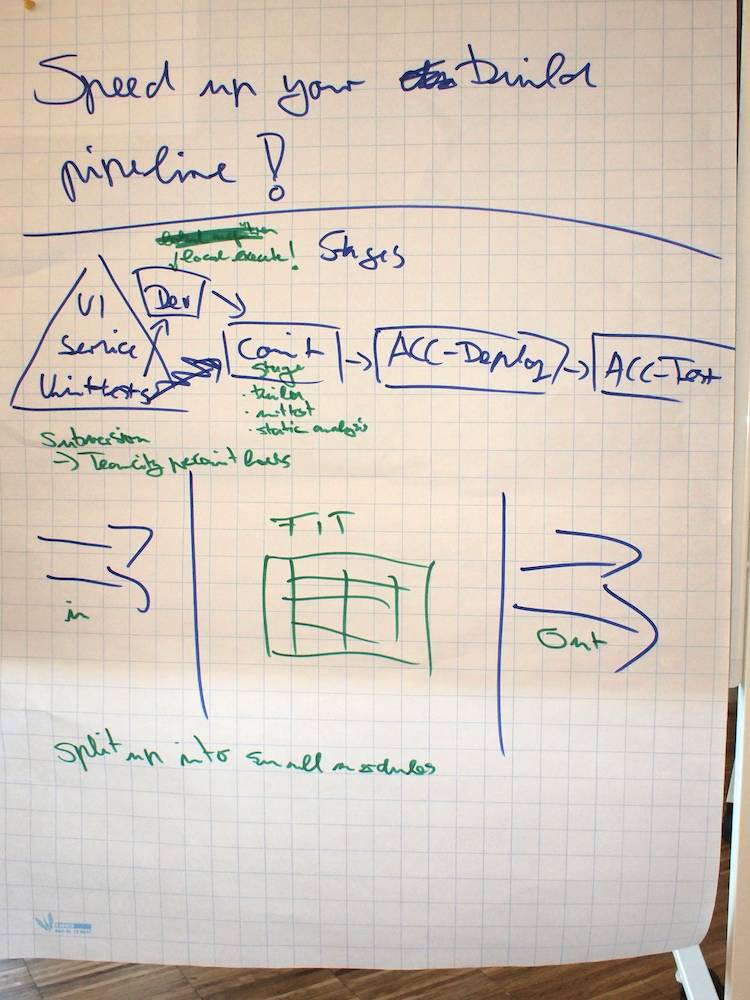 Speed up your build
pipeline!
local execute!
Stages
UI
Service
Unittests
Dev
Comit
stage
· build
· unittest
· static analysis
ACC-Deploy
ACC-Test
Subversion
→ Teamcity
FIT
in
Out
split up into small modules